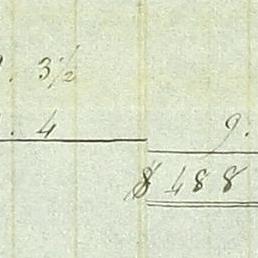 . 3½
. 4
9.
$ 488